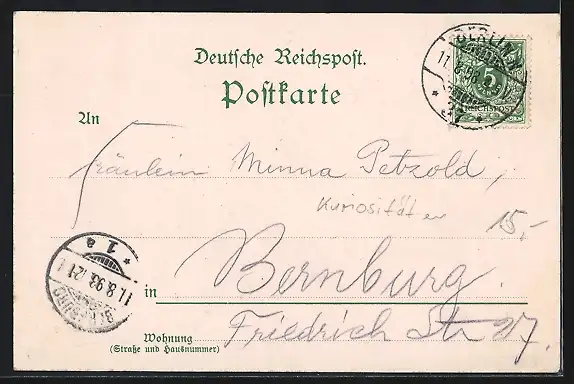 Deutsche Reichspost.
Postkarte
An
Fräulein Minna Petzold,
Kuriositäten
15,-
in Bernburg.
Wohnung Friedrich Str 27.
(Straße und Hausnummer)
BERLIN
REICHSPOST
* 1 a
11.8.93
BERNBURG